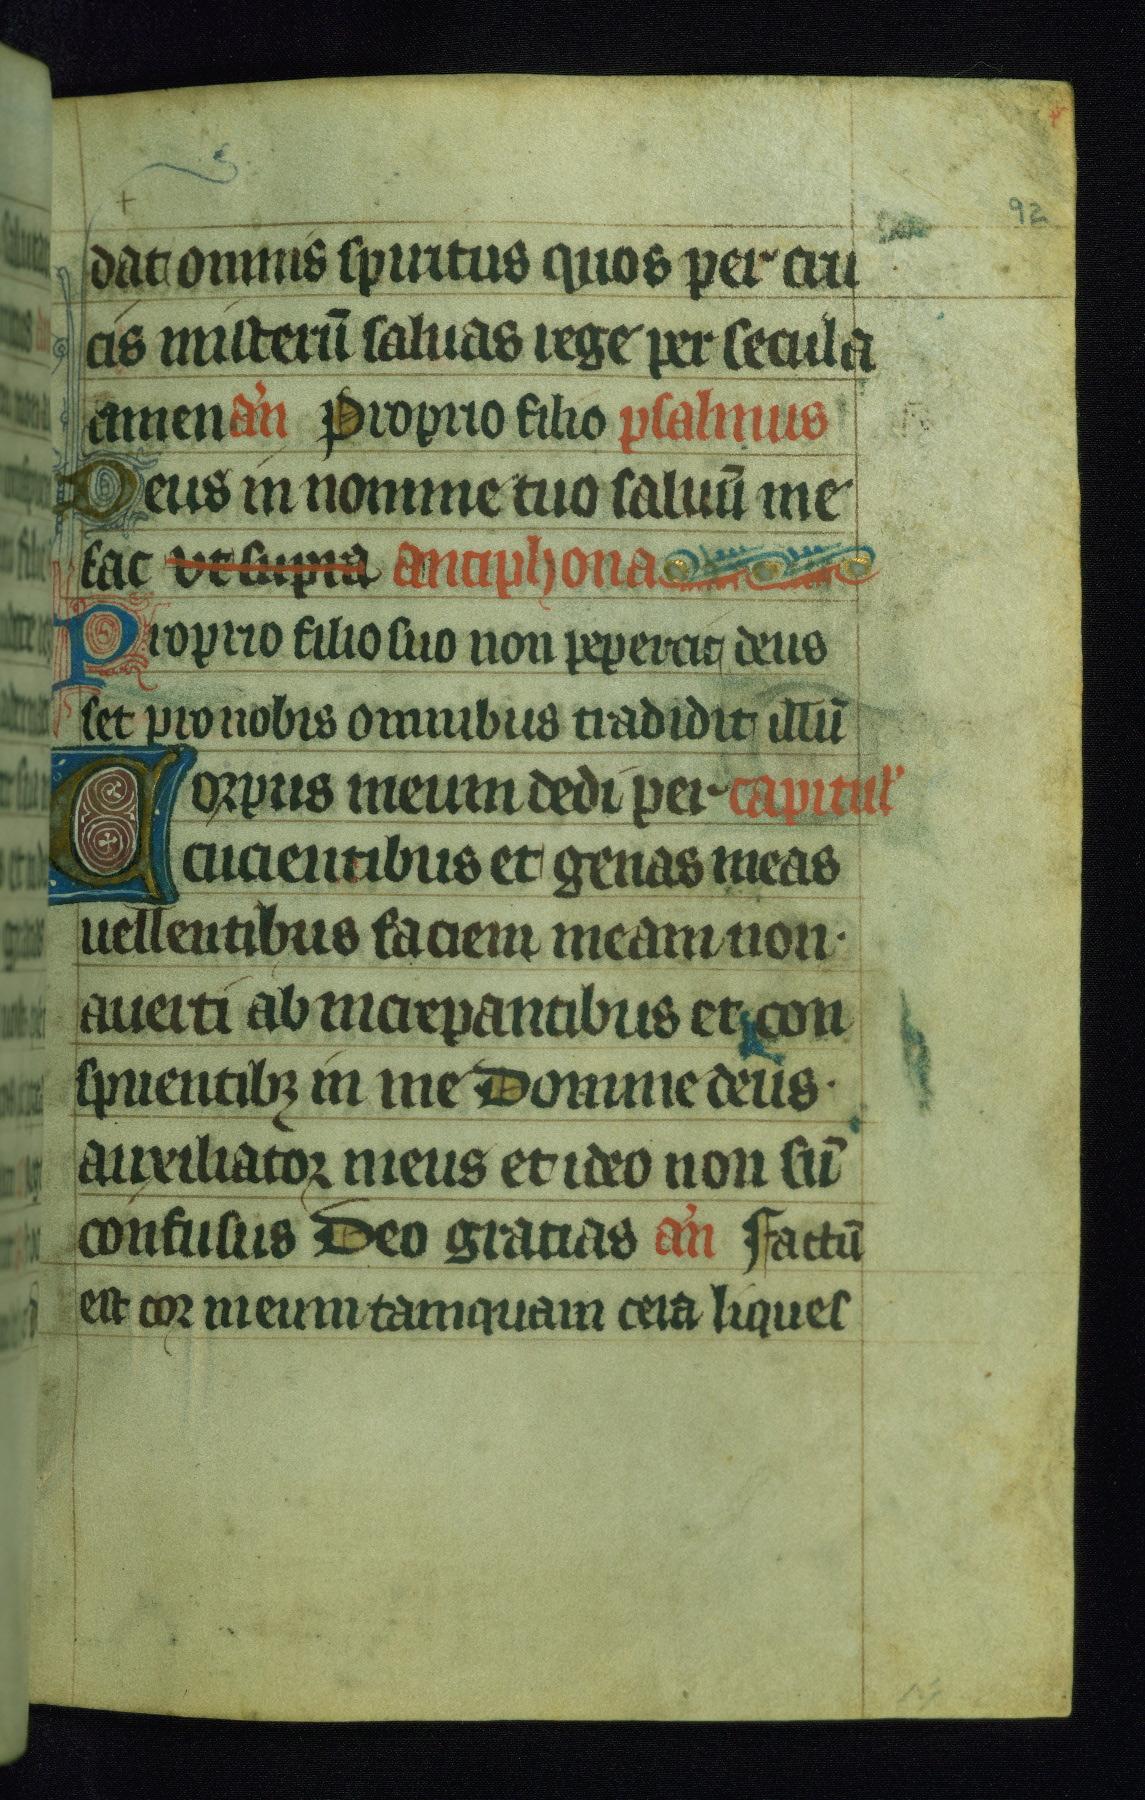 92
dat omnis spiritus quos per cru
cis misteriū saluas rege per secula
amen an̄ Proprio filio psalmus
Deus in nomine tuo saluū me
fac vt supra antiphona
Proprio filio suo non pepercit deus
set pro nobis omnibus tradidit illū
Corpus meum dedi per capitul'
cucientibus et genas meas
uellentibus faciem meam non·
auerti ab increpantibus et con
spuentibꝫ in me Domine deus·
auxiliator meus et ideo non sū
confusus Deo gratias an̄ Factū
est cor meum tamquam cera liques